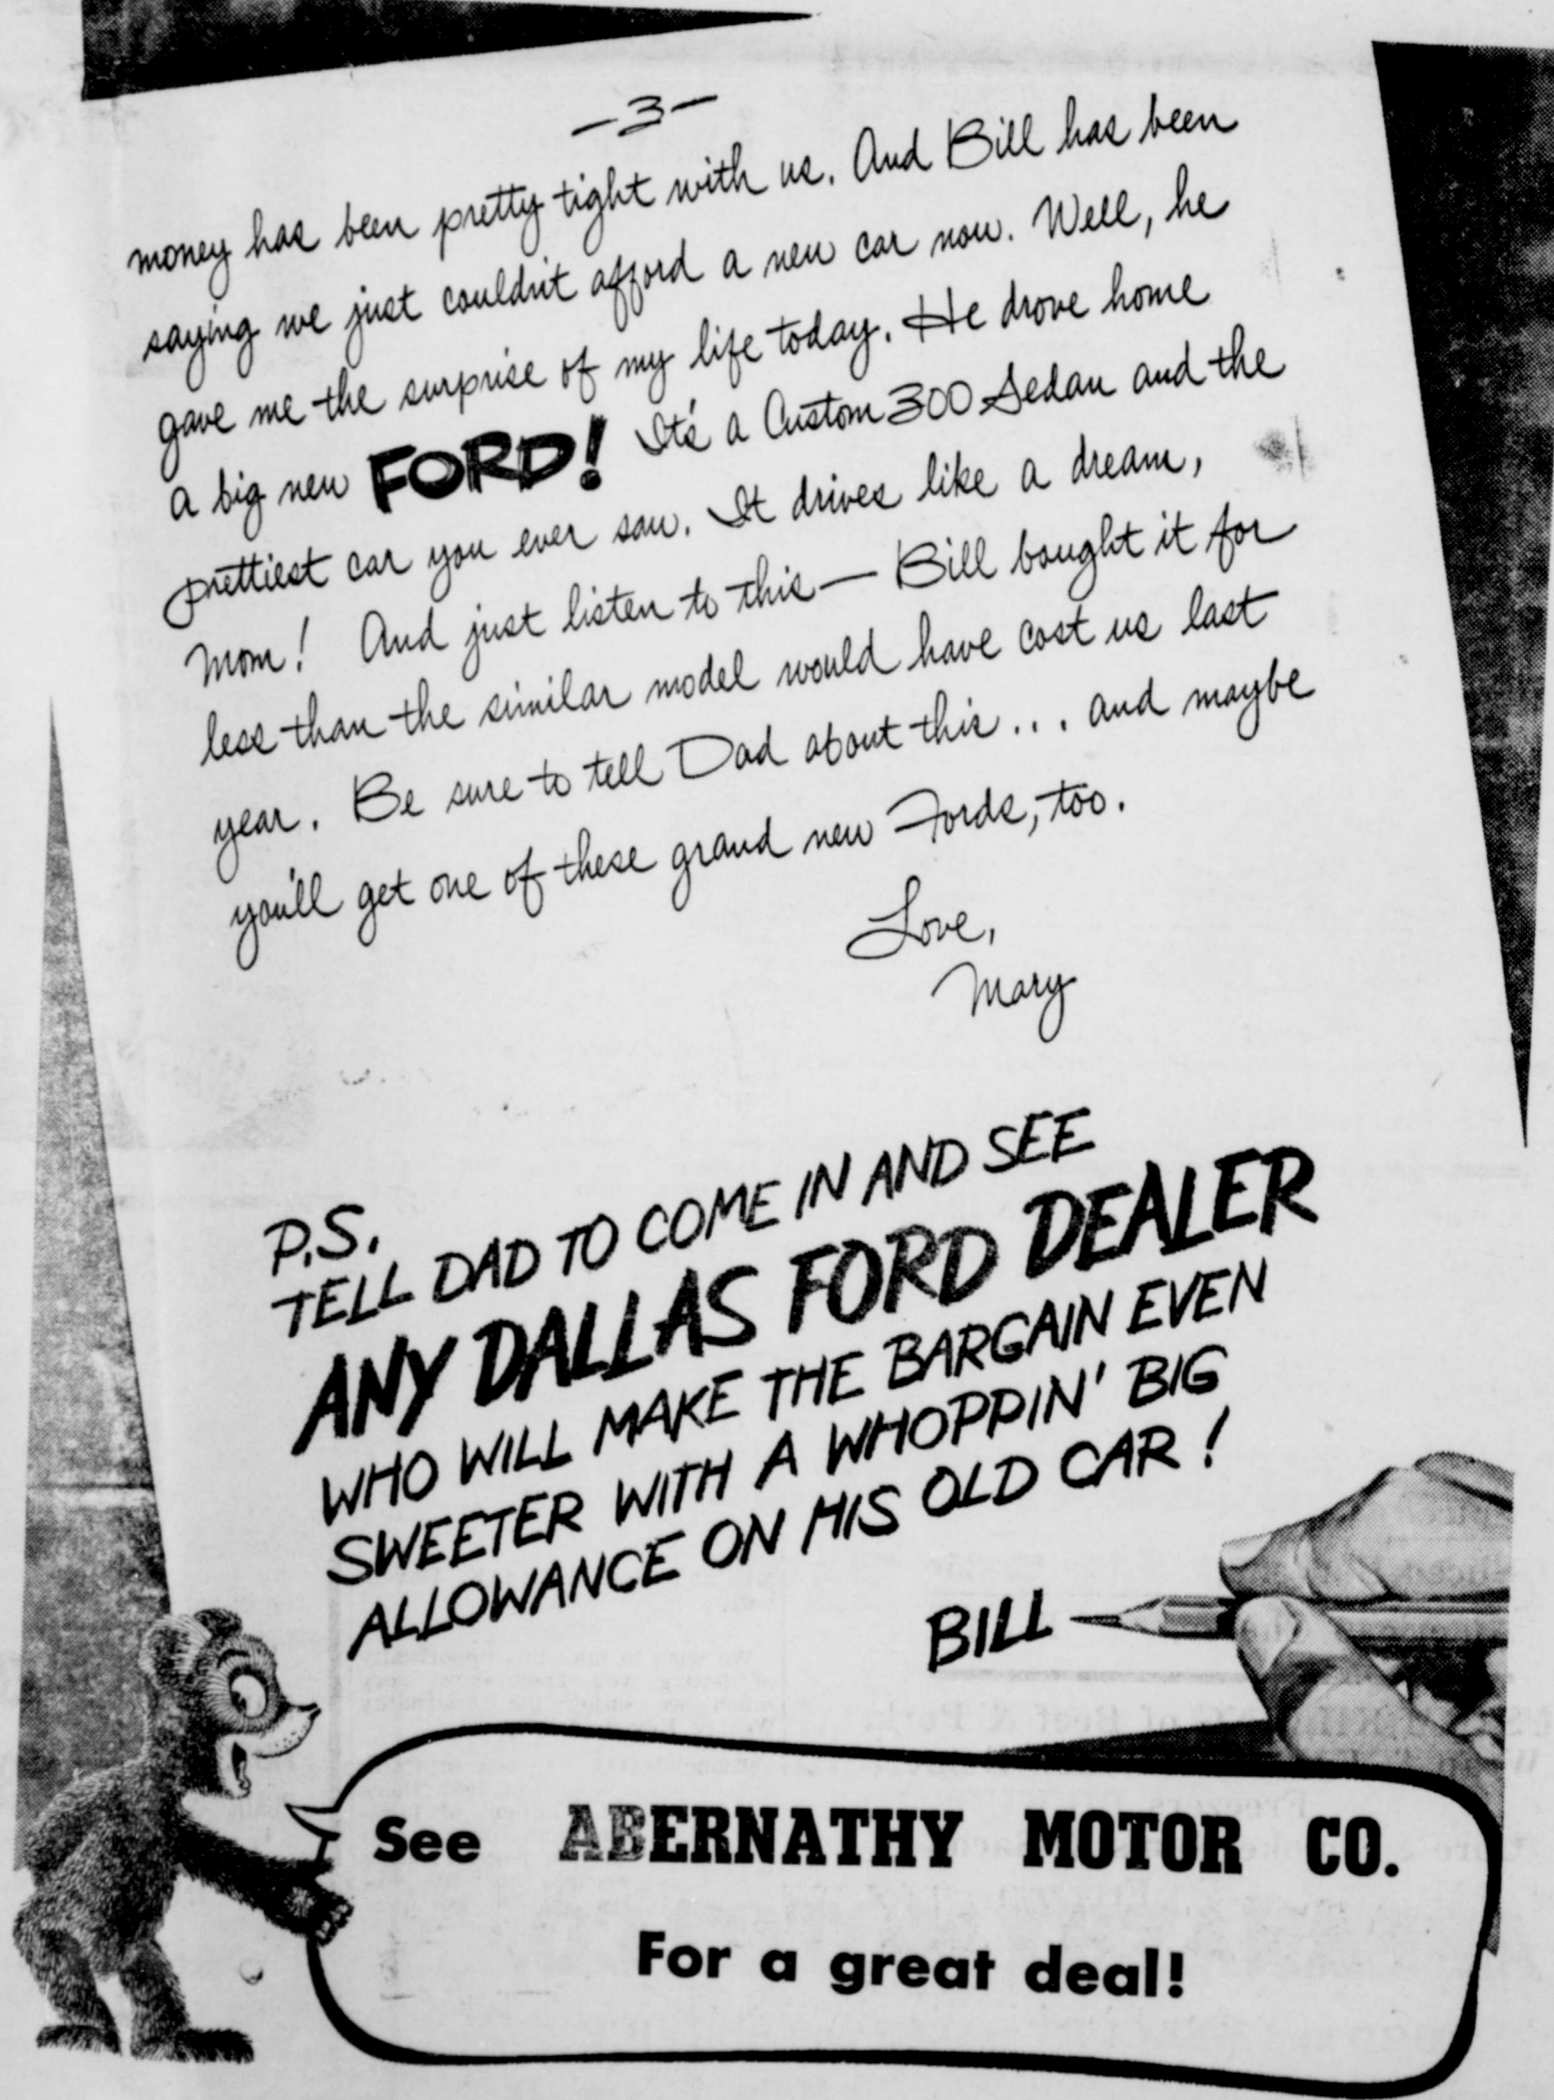 -3-
money has been pretty tight with us. And Bill has been
saying we just couldn't afford a new car now. Well, he
gave me the surprise of my life today. He drove home
a big new FORD! It's a Custom 300 Sedan and the
prettiest car you ever saw. It drives like a dream,
Mom! And just listen to this — Bill bought it for
less than the similar model would have cost us last
year. Be sure to tell Dad about this... and maybe
you'll get one of these grand new Fords, too.
Love,
Mary
P.S.
TELL DAD TO COME IN AND SEE
ANY DALLAS FORD DEALER
WHO WILL MAKE THE BARGAIN EVEN
SWEETER WITH A WHOPPIN' BIG
ALLOWANCE ON HIS OLD CAR!
BILL
See ABERNATHY MOTOR CO.
For a great deal!